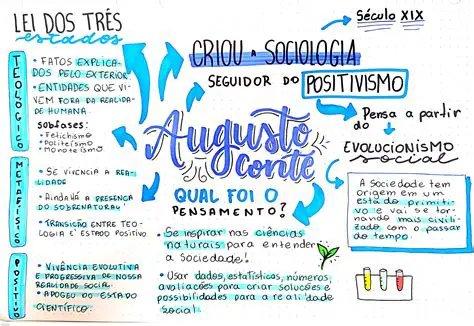 LEI DOS TRÊS
estados
TEOLÓGICO
• FATOS EXPLICA-
DOS PELO EXTERIOR.
• ENTIDADES QUE VI-
VEM FORA DA REALIDA-
DE HUMANA.
subfases:
• Fetichismo
• Politeísmo
• Monoteísmo
METAFÍSICO
• SE VIVENCIA A REA-
LIDADE
• AINDA HÁ A PRESENÇA
DO SOBRENATURAL
• TRANSIÇÃO ENTRE TEO-
LOGIA E ESTADO POSITIVO
POSITIVO
• VIVÊNCIA EVOLUTIVA
E PROGRESSIVA DE NOSSA
REALIDADE SOCIAL
• APOGEU DO ESTADO
CIENTÍFICO.
Século XIX
CRIOU a SOCIOLOGIA
SEGUIDOR DO POSITIVISMO
Augusto
conte
Pensa a partir
do
EVOLUCIONISMO
social
A Sociedade tem
origem em um
estado primiti-
vo e vai se tor-
nando mais civili-
zado com o passar
do tempo.
QUAL FOI O
PENSAMENTO?
• Se inspirar nas ciências
naturais para entender
a Sociedade!
• Usar dados, estatísticas, números,
avaliações para criar soluções e
possibilidades para a realidade
social